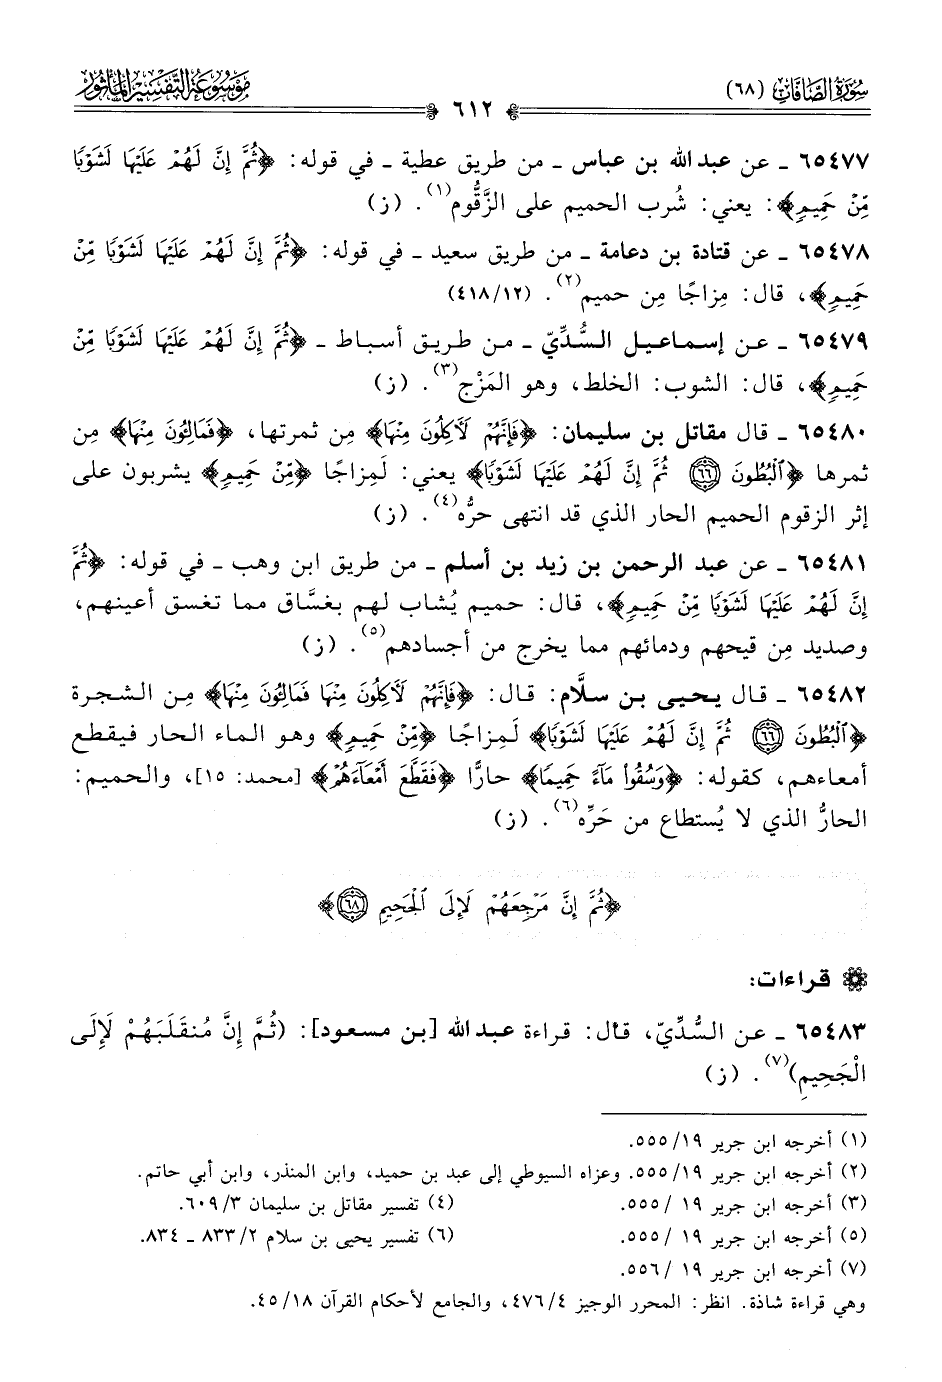 سُورَةُ الصَّافَّاتِ (٦٨)
٦١٢
مَوْسُوعَةُ التَّفْسِيرِ المَأْثُورِ
٦٥٤٧٧ ـ عن عبد الله بن عباس ـ من طريق عطية ـ في قوله: ﴿ثُمَّ إِنَّ لَهُمْ عَلَيْهَا لَشَوْبًا
مِّنْ حَمِيمٍ﴾: يعني: شُرب الحميم على الزَّقُّوم(١). (ز)
٦٥٤٧٨ ـ عن قتادة بن دعامة ـ من طريق سعيد ـ في قوله: ﴿ثُمَّ إِنَّ لَهُمْ عَلَيْهَا لَشَوْبًا مِّنْ
حَمِيمٍ﴾، قال: مِزاجًا مِن حميم(٢). (٤١٨/١٢)
٦٥٤٧٩ ـ عن إسماعيل السُّدِّيّ ـ من طريق أسباط ـ ﴿ثُمَّ إِنَّ لَهُمْ عَلَيْهَا لَشَوْبًا مِّنْ
حَمِيمٍ﴾، قال: الشوب: الخلط، وهو المَزْج(٣). (ز)
٦٥٤٨٠ ـ قال مقاتل بن سليمان: ﴿فَإِنَّهُمْ لَآكِلُونَ مِنْهَا﴾ مِن ثمرتها، ﴿فَمَالِئُونَ مِنْهَا﴾ مِن
ثمرها ﴿الْبُطُونَ ۝٦٦ ثُمَّ إِنَّ لَهُمْ عَلَيْهَا لَشَوْبًا﴾ يعني: لَمِزاجًا ﴿مِّنْ حَمِيمٍ﴾ يشربون على
إثر الزقوم الحميم الحار الذي قد انتهى حرُّه(٤). (ز)
٦٥٤٨١ ـ عن عبد الرحمن بن زيد بن أسلم ـ من طريق ابن وهب ـ في قوله: ﴿ثُمَّ
إِنَّ لَهُمْ عَلَيْهَا لَشَوْبًا مِّنْ حَمِيمٍ﴾، قال: حميم يُشاب لهم بغسَّاق مما تغسق أعينهم،
وصديد مِن قيحهم ودمائهم مما يخرج من أجسادهم(٥). (ز)
٦٥٤٨٢ ـ قال يحيى بن سلَّام: قال: ﴿فَإِنَّهُمْ لَآكِلُونَ مِنْهَا فَمَالِئُونَ مِنْهَا﴾ مِن الشجرة
﴿الْبُطُونَ ۝٦٦ ثُمَّ إِنَّ لَهُمْ عَلَيْهَا لَشَوْبًا﴾ لَمِزاجًا ﴿مِّنْ حَمِيمٍ﴾ وهو الماء الحار فيقطع
أمعاءهم، كقوله: ﴿وَسُقُوا مَاءً حَمِيمًا﴾ حارًّا ﴿فَقَطَّعَ أَمْعَاءَهُمْ﴾ [محمد: ١٥]، والحميم:
الحارُّ الذي لا يُستطاع من حَرِّه(٦). (ز)
﴿ثُمَّ إِنَّ مَرْجِعَهُمْ لَإِلَى الْجَحِيمِ ۝٦٨﴾
قراءات:
٦٥٤٨٣ ـ عن السُّدِّيّ، قال: قراءة عبد الله [بن مسعود]: (ثُمَّ إِنَّ مُنقَلَبَهُمْ لَإِلَى
الْجَحِيمِ)(٧). (ز)
(١) أخرجه ابن جرير ١٩/ ٥٥٥.
(٢) أخرجه ابن جرير ١٩/ ٥٥٥. وعزاه السيوطي إلى عبد بن حميد، وابن المنذر، وابن أبي حاتم.
(٣) أخرجه ابن جرير ١٩ / ٥٥٥. (٤) تفسير مقاتل بن سليمان ٣/ ٦٠٩.
(٥) أخرجه ابن جرير ١٩ / ٥٥٥. (٦) تفسير يحيى بن سلام ٢/ ٨٣٣ ـ ٨٣٤.
(٧) أخرجه ابن جرير ١٩ / ٥٥٦.
وهي قراءة شاذة. انظر: المحرر الوجيز ٤/ ٤٧٦، والجامع لأحكام القرآن ١٨/ ٤٥.